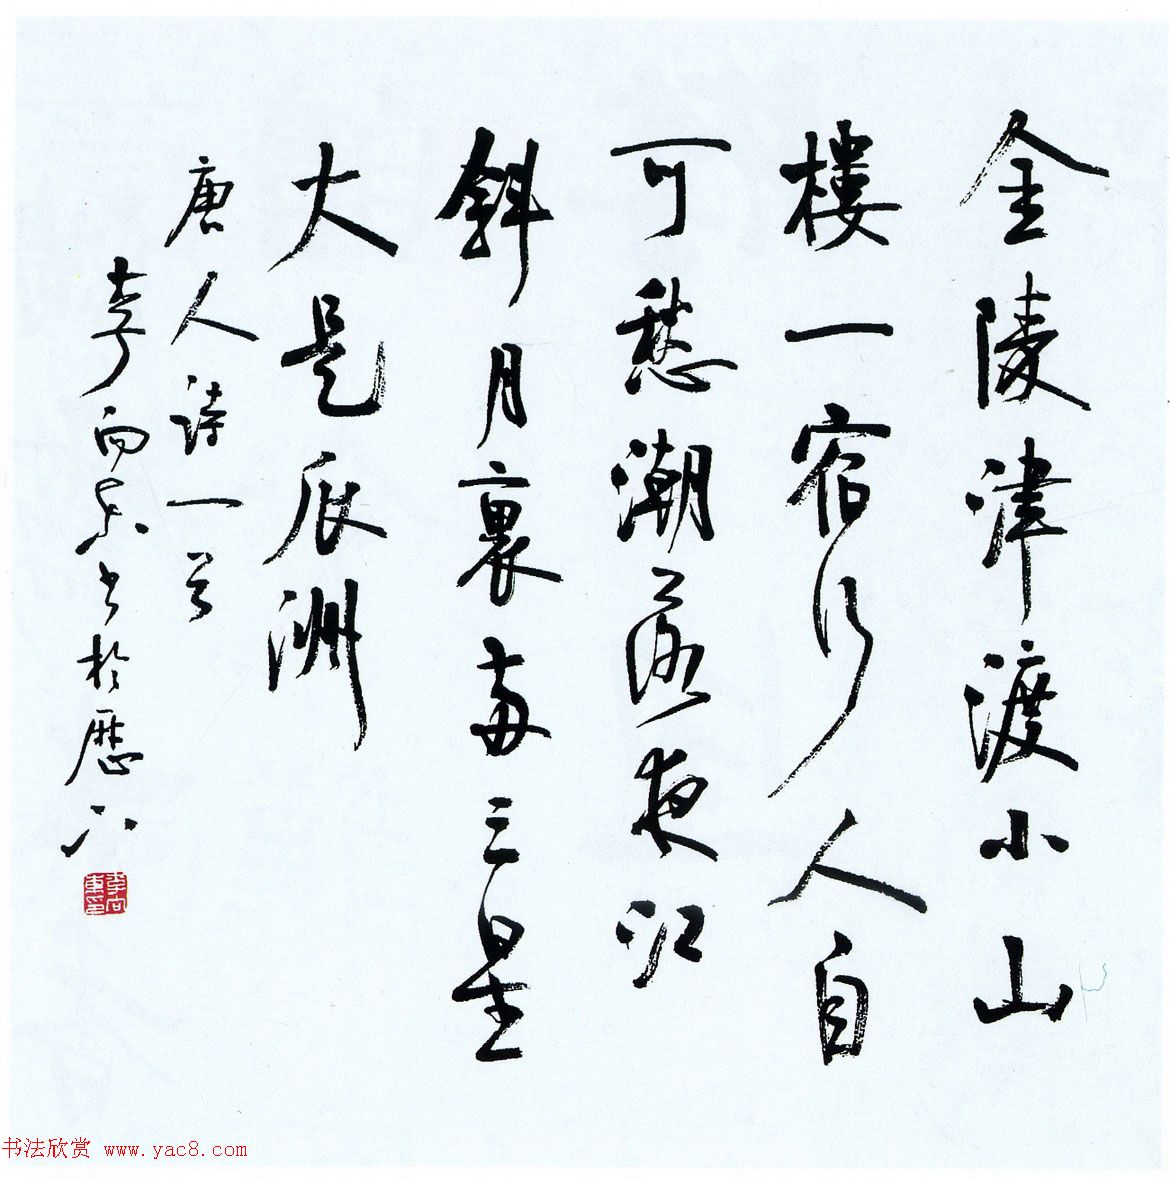 金陵津渡小山
樓一宿行人自
可愁潮落夜江
斜月裏兩三星
火是瓜洲
唐人詩一首
李向東書於歷下
李向東印
书法欣赏 www.yac8.com